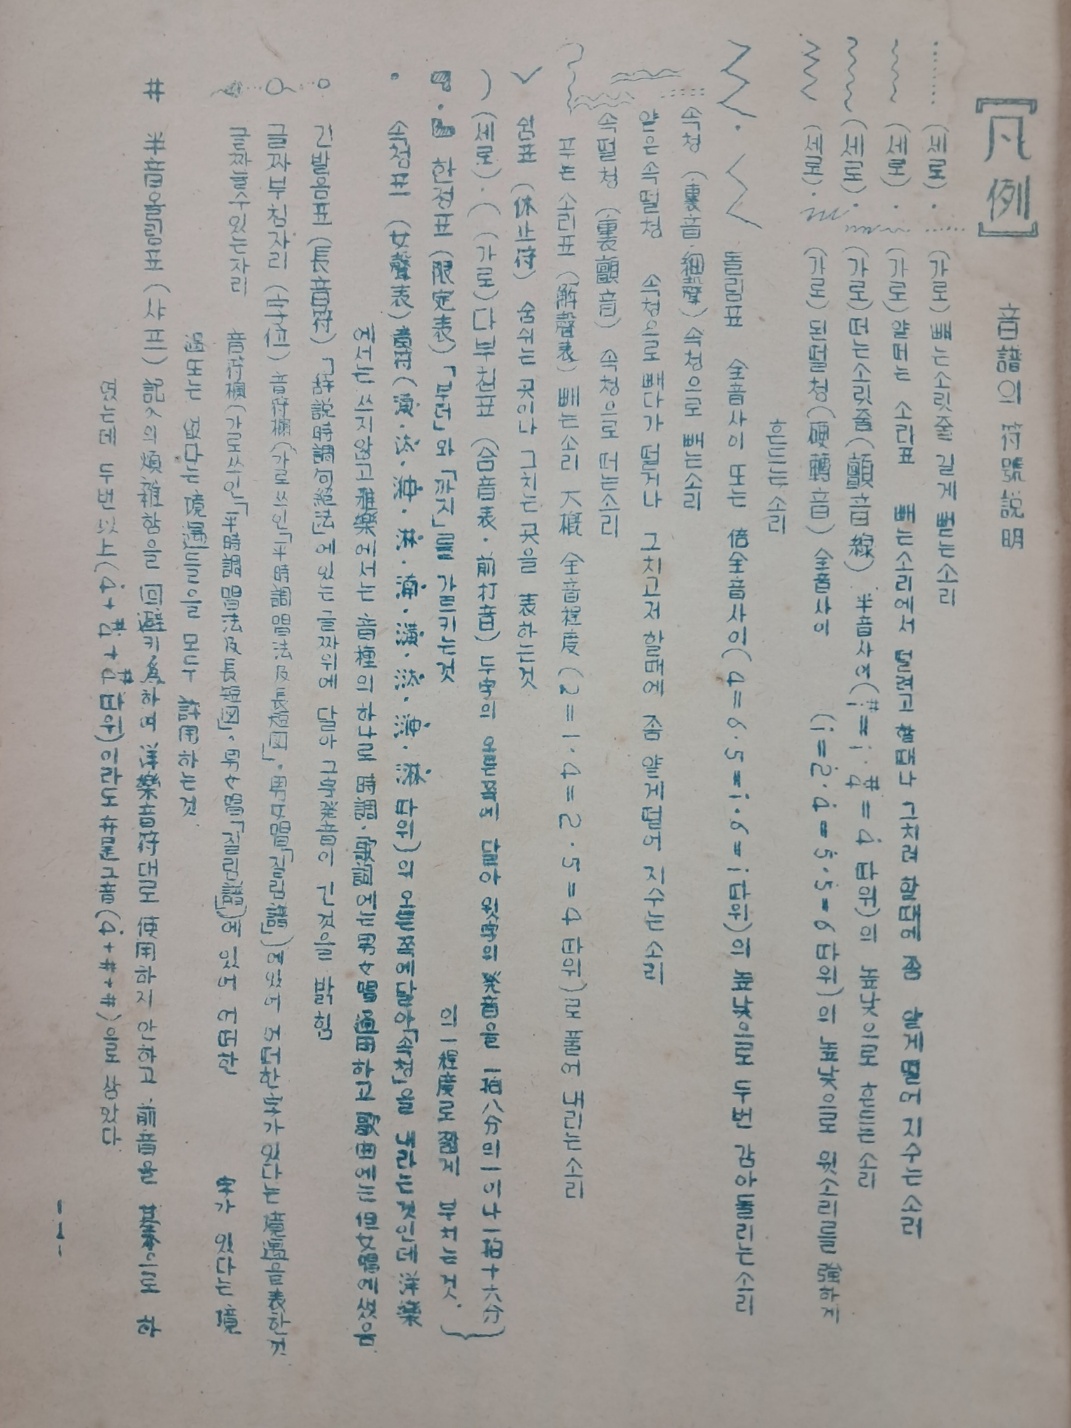 [凡例] 音譜의 符號説明
(세로)· (가로) 빼는소릿줄 길게 뻗는소리
(세로)· (가로) 얕떠는 소리표 빼는소리에서 덜려고 할때나 그치려 할때에 좀 얕게떨어 지수는소리
(세로)· (가로) 떠는소릿줄 (顫音線) 半音사이 따위)의 높낮으로 흔드는소리
(세로)· (가로) 된떨청 (硬轉音) 全音사이 (i=2· 따위)의 높낮으로 윗소리를 強하게
흔드는소리
돌림표 全音사이 또는 倍全音사이 (4=6·5=i·6=i 따위)의 높낮으로 두번 감아돌리는소리
속청 (裏音·細聲) 속청으로 빼는소리
얕은속떨청 속청으로 빼다가 덜거나 그치고저 할때에 좀 얕게떨어 지수는소리
속떨청 (裏顫音) 속청으로 떠는소리
푸는 소리표 (解聲表) 빼는소리 大槪 全音程度 (2=1·4=2·5=4 따위)로 풀어 내리는소리
✓ 쉼표 (休止符) 숨쉬는 곳이나 그치는 곳을 表하는것
) (세로)·⏜ (가로) 다부침표 (合音表·前打音) 두字의 오른쪽에 달아 윗字의 発音을 一拍八分의一이나 一拍十六分
의 一程度로 짧게 부치는것.
한정표 (限定表) 「부터」와 「까지」를 가르키는것
속청표 (女聲表) 音符 ( 따위)의 오른쪽에달아 「속청」을 내라는것인데 洋樂
에서는 쓰지않고 雅樂에서는 音種의 하나로 時調·歌詞에는 男女唱 通用하고 歌曲에는 但女唱에 썼음
○ 긴발음표 (長音符) 「辞説時調句絶法」에 있는 글짜위에 달아 그字発音이 긴것을 밝힘
글자부침자리 (字位) 音符欄 (가로쓰인 「平時調唱法及長短図」·男女唱 「질림譜」)에있어 어떠한 字가 있다는 境遇를 表한것
글짜놓수있는자리 音符欄 (가로쓰인 「平時調唱法及長短図」·男女唱 「질림譜」)에 있어 어떠한 字가 있다는 境
遇 또는 없다는 境遇들을 모두 許用하는것.
# 半音올림표 (샤프) 記入의 煩雜함을 回避키爲하여 洋樂音符대로 使用하지 안하고 前音을 基本으로 하
였는데 두번以上 ( 따위)이라도 #是그音 (4+#+#)으로 삼았다.
-1-